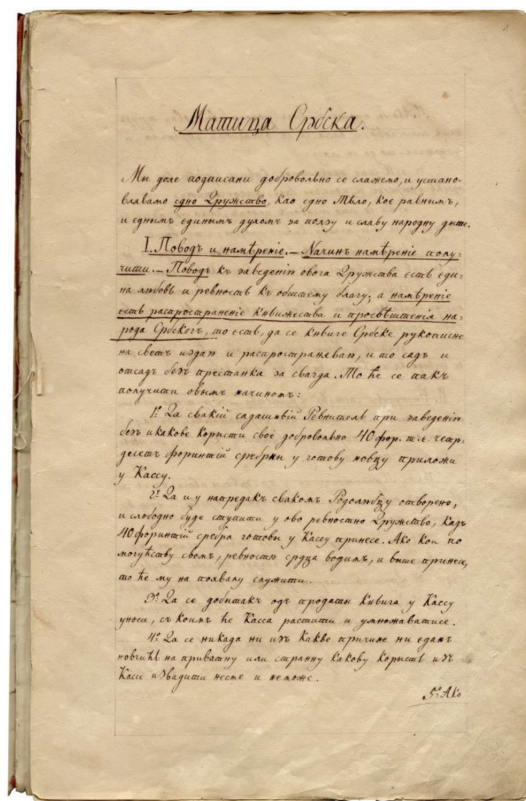 Матица Србска.
Мы доле подписани добровольно се слажемо, и устано-
влявамо едно Дружество, као едно Тѣло, кое равнымъ,
и еднымъ единымъ духомъ за ползу и славу народну дыше.
I. Поводъ и намѣреніе. — Начинъ намѣреніе полу-
чити. — Поводъ къ заведенію овога Дружства есть еди-
на любовь и ревность къ обштему благу; а намѣреніе
есть распространеніе књижества и просвѣштенія на-
рода Србскогъ, то есть, да се књиге Србске рукописне
на светъ издаю и распростираваю, и то садъ и
отсадъ безъ престанка за свагда. То ће се пакъ
получити овымъ начиномъ:
1º Да свакій садашньій Ревнитель при заведенію
безъ икакове користи свое добровольно 40 фор. т.е. четр-
десетъ форинтій сребра у готову новцу приложи
у Кассу.
2º Да и у напредакъ свакомъ Родолюбцу отворено,
и слободно буде ступити у ово ревностно Дружство, кадъ
40 форинтій сребра готовы у Кассу принесе. Ако кои по
могућству своме, ревностію срдца водимъ, и выше принесе,
то ће му на похвалу служити.
3º Да се добытакъ одъ продаты књига у Кассу
уноси, съ коимъ ће Касса растити и умножаватисе.
4º Да се никада ни изъ какве причине ни еданъ
новчићъ на приватну или страну какову користь изъ
Касе извадити несме и неможе.
5º Ако